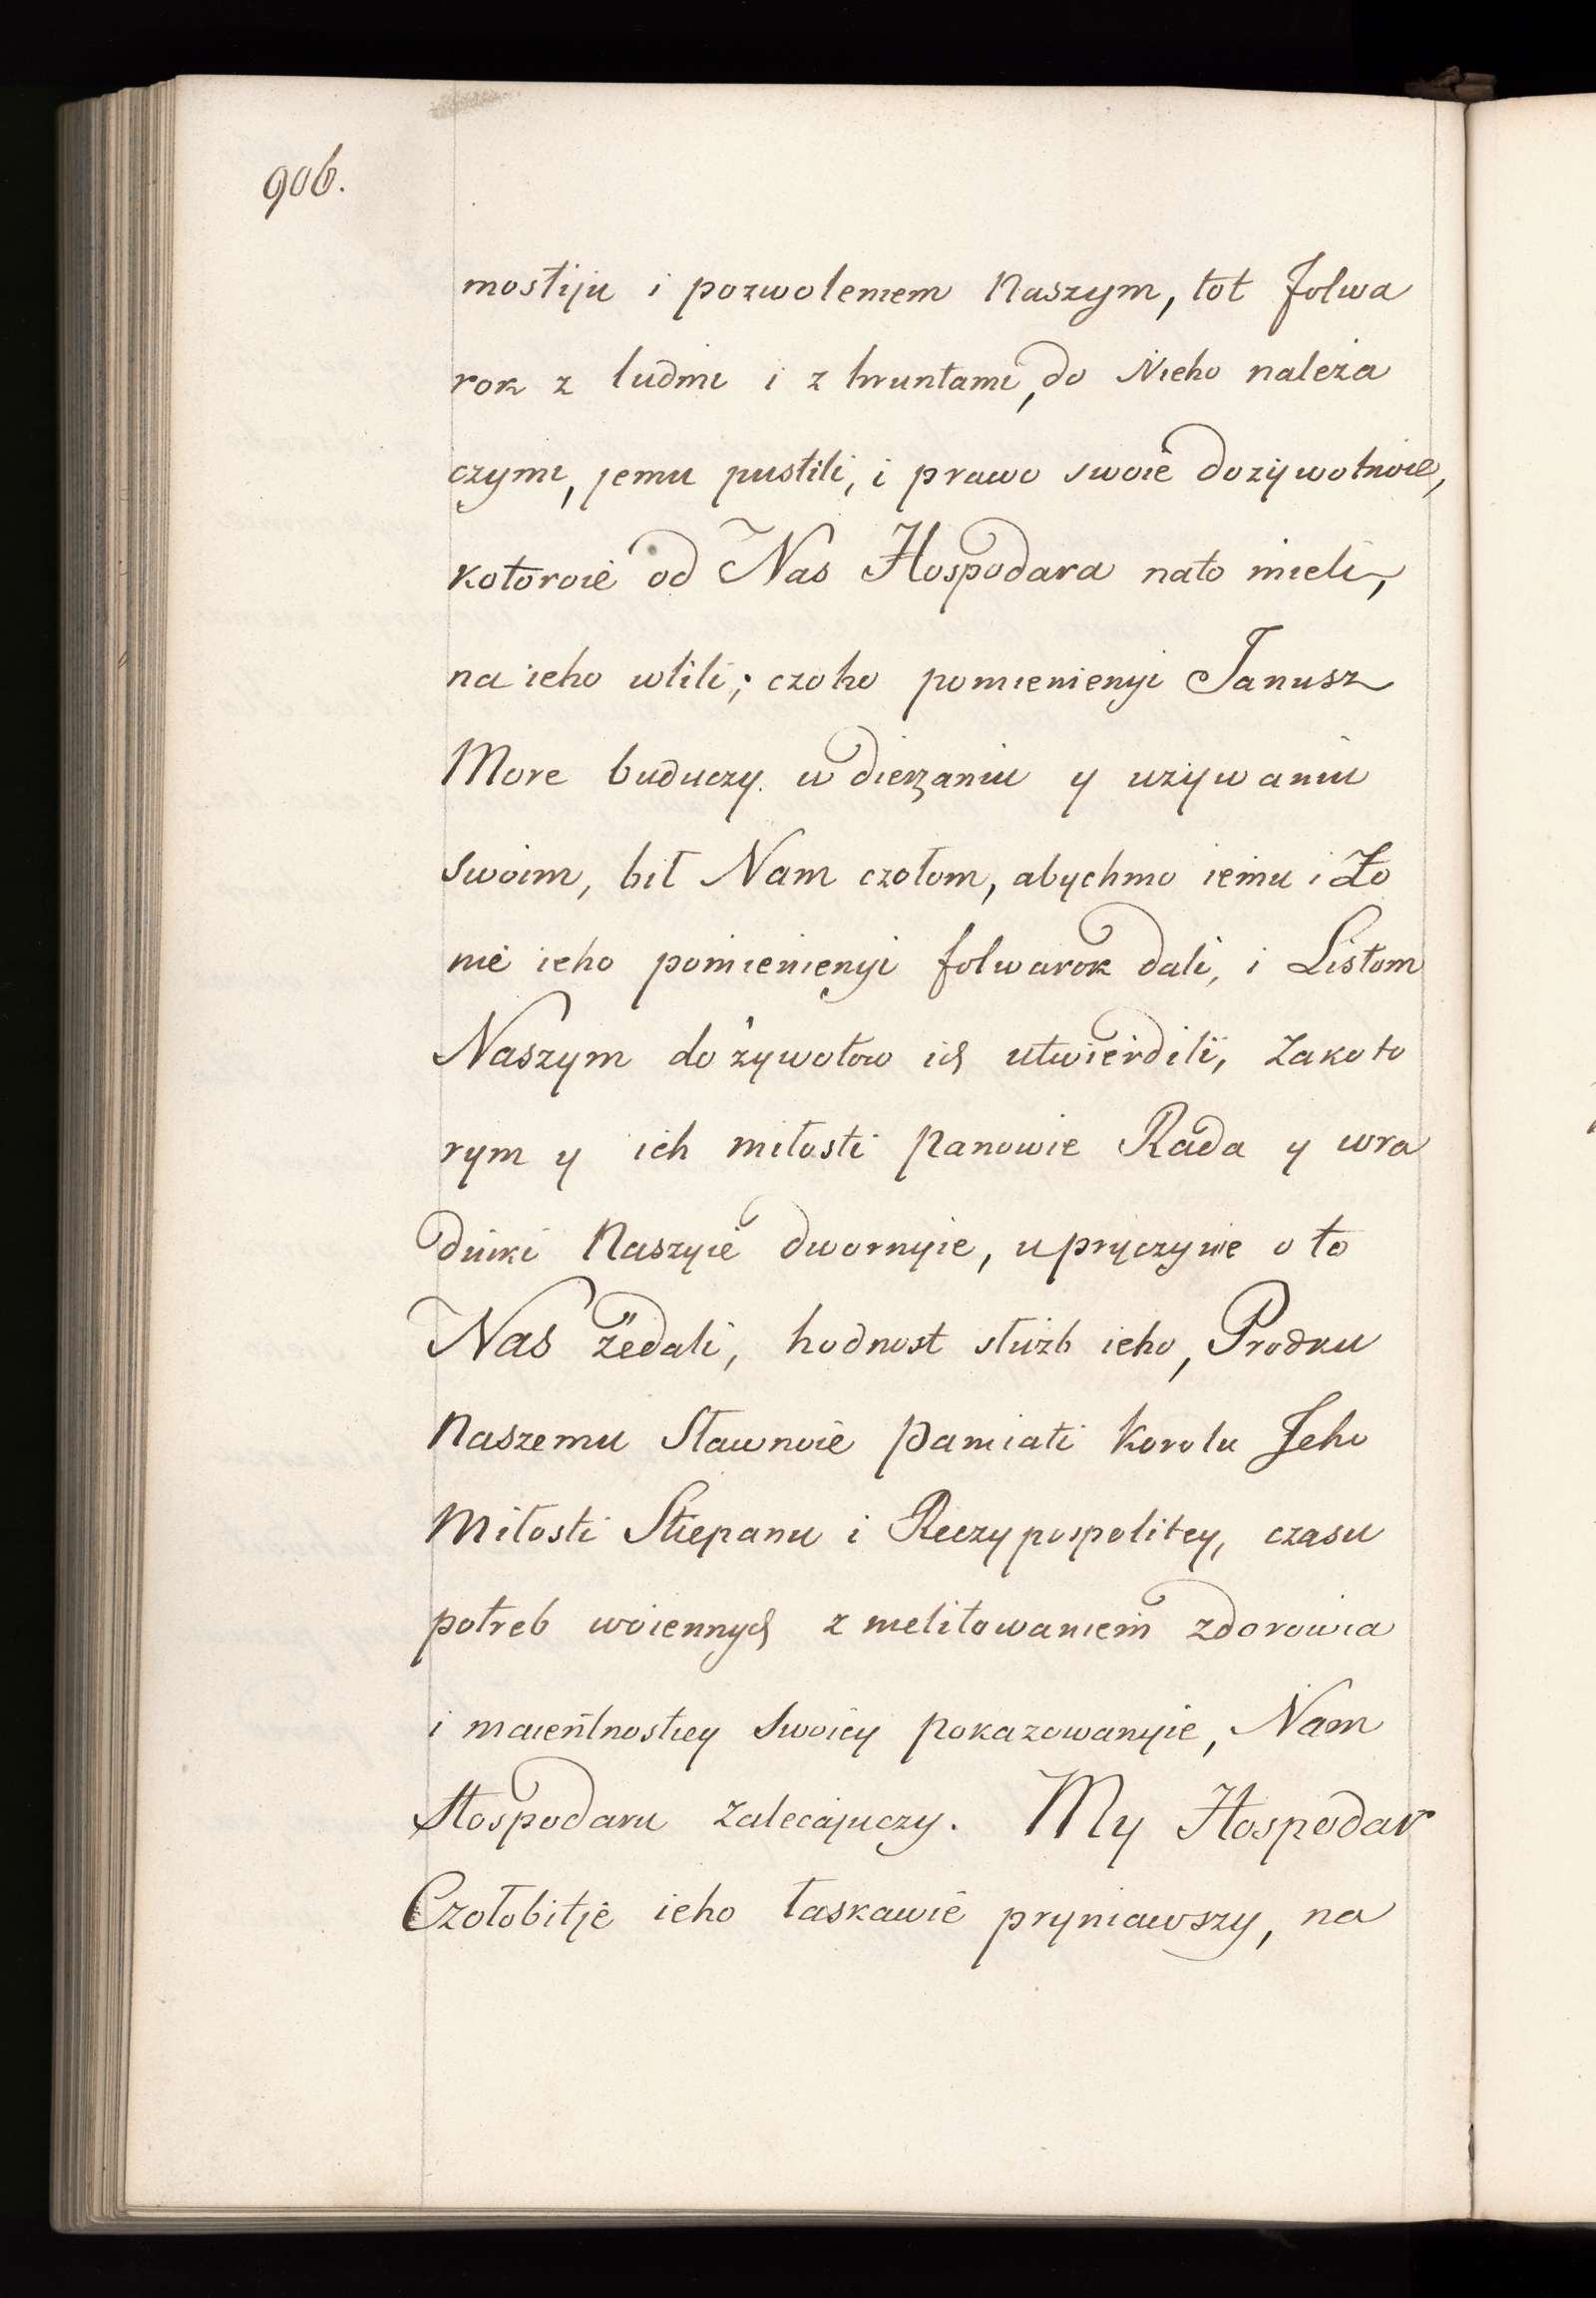 906.
mostiju i pozwoleniem Naszym, tot folwa
rok z ludmi i z hruntami, do Nieho należa
czymi, jemu pustili, i prawo swoie dożywotnoie,
kotoroie od Nas Hospodara nato mieli,
na ieho wlili; czoho pomienienyi Janusz
More buduczy w dierżaniu y używaniu
swoim, bił Nam czołom, abychmo iemu i Żo
nie ieho pomienienyi folwarok dali, i Listom
Naszym do żywotow ich utwierdili, Zakoto
rym y ich miłosti Panowie Rada y wra
dniki Naszyie dwornyie, u pryczynie o to
Nas żedali, hodnost służb ieho, Prodku
Naszemu Sławnoie Pamiati Korolu Jeho
Miłosti Stiepanu i Reczypospolitey, czasu
potreb woiennych z nielitowaniem zdorowia
i maientnostiey Swoiey pokazowanyie, Nam
Hospodaru zalecajuczy. My Hospodar
Czołobitje ieho łaskawie pryniawszy, na